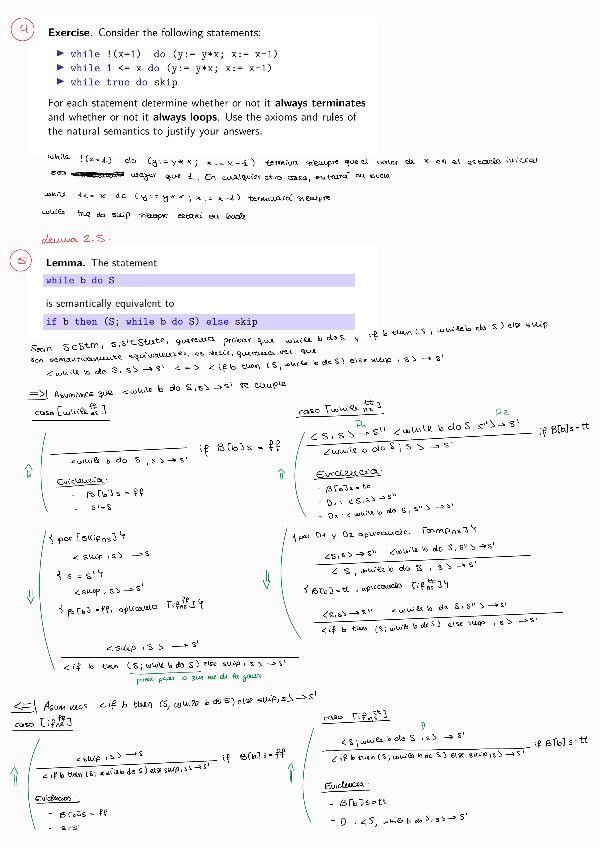 4
Exercise. Consider the following statements:
▶ while !(x=1) do (y:= y*x; x:= x-1)
▶ while 1 <= x do (y:= y*x; x:= x-1)
▶ while true do skip
For each statement determine whether or not it always terminates
and whether or not it always loops. Use the axioms and rules of
the natural semantics to justify your answers.
while !(x=1) do (y:= y*x; x:= x-1) termina siempre que el valor de x en el estado inicial
sea mayor que 1. En cualquier otro caso, entrará en bucle
while 1<=x do (y:= y*x; x:= x-1) terminará siempre
while true do skip siempre estará en bucle
Lemma 2.5.
5
Lemma. The statement
while b do S
is semantically equivalent to
if b then (S; while b do S) else skip
Sean S∈Stm, s,s'∈State, queremos probar que while b do S y if b then (S; while b do S) else skip
son semánticamente equivalentes, es decir, queremos ver que
<while b do S, s> → s' <=> <if b then (S; while b do S) else skip, s> → s'
=>| Asumimos que <while b do S, s> → s' se cumple
caso [while ns ff]
<while b do S, s> → s' if B[b]s = ff
Evidencia:
- B[b]s = ff
- s'=s
{ por [skip ns] }
<skip, s> → s
{ s = s' }
<skip, s> → s'
{ B[b]s = ff, aplicando [if ns ff] }
<skip, s> → s'
<if b then (S; while b do S) else skip, s> → s'
caso [while ns tt]
D1 D2
<S, s> → s'' <while b do S, s''> → s' if B[b]s = tt
<while b do S, s> → s'
Evidencia:
- B[b]s = tt
- D1: <S, s> → s''
- D2: <while b do S, s''> → s'
{ por D1 y D2 aplicando [comp ns] }
<S, s> → s'' <while b do S, s''> → s'
<S; while b do S, s> → s'
{ B[b]s = tt, aplicando [if ns tt] }
<S, s> → s'' <while b do S, s''> → s'
<if b then (S; while b do S) else skip, s> → s'
<=| Asumimos <if b then (S; while b do S) else skip, s> → s'
caso [if ns ff]
<skip, s> → s if B[b]s = ff
<if b then (S; while b do S) else skip, s> → s'
Evidencias
- B[b]s = ff
- s=s'
caso [if ns tt]
D
<S; while b do S, s> → s' if B[b]s = tt
<if b then (S; while b do S) else skip, s> → s'
Evidencia:
- B[b]s = tt
- D: <S; while b do S, s> → s'